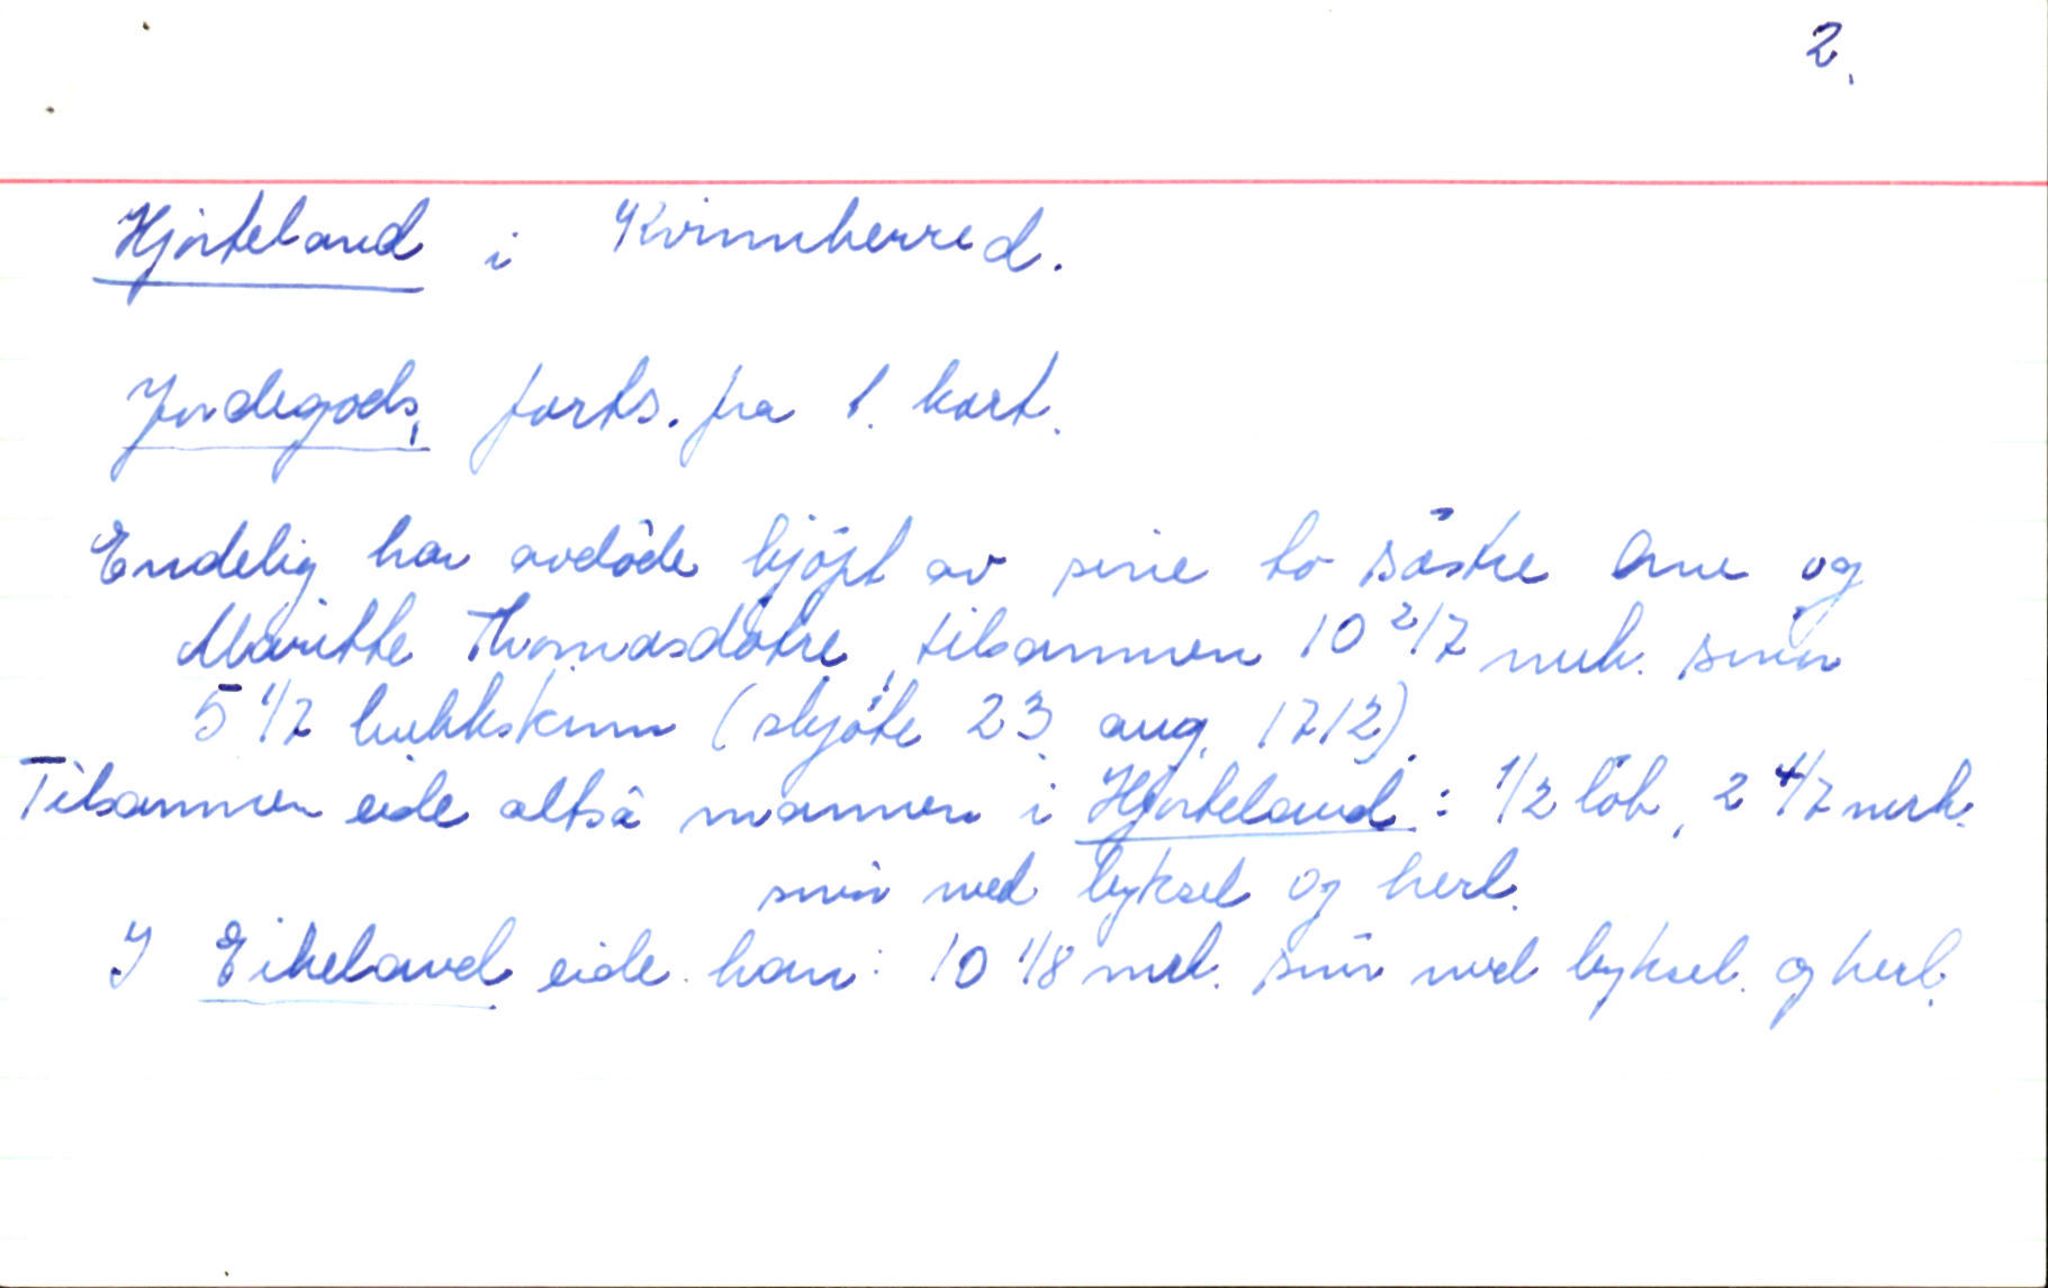 2.
Hjorteland i Kvinnherred.
Jordegods, forts. fra 1. kort.
Endelig har avdöde kjöpt av sine to söstre Ane og
Maritte Thomasdötre, tilsammen 10 2/7 mrk. smör
5 1/7 bukkskinn (skjöte 23 aug. 1712).
Tilsammen eide altså mannen i Hjorteland: 1/2 löb, 2 4/7 mrk.
smör med byksel og herl.
I Eikeland eide han: 10 1/8 mrk. smör med byksel. og herl.